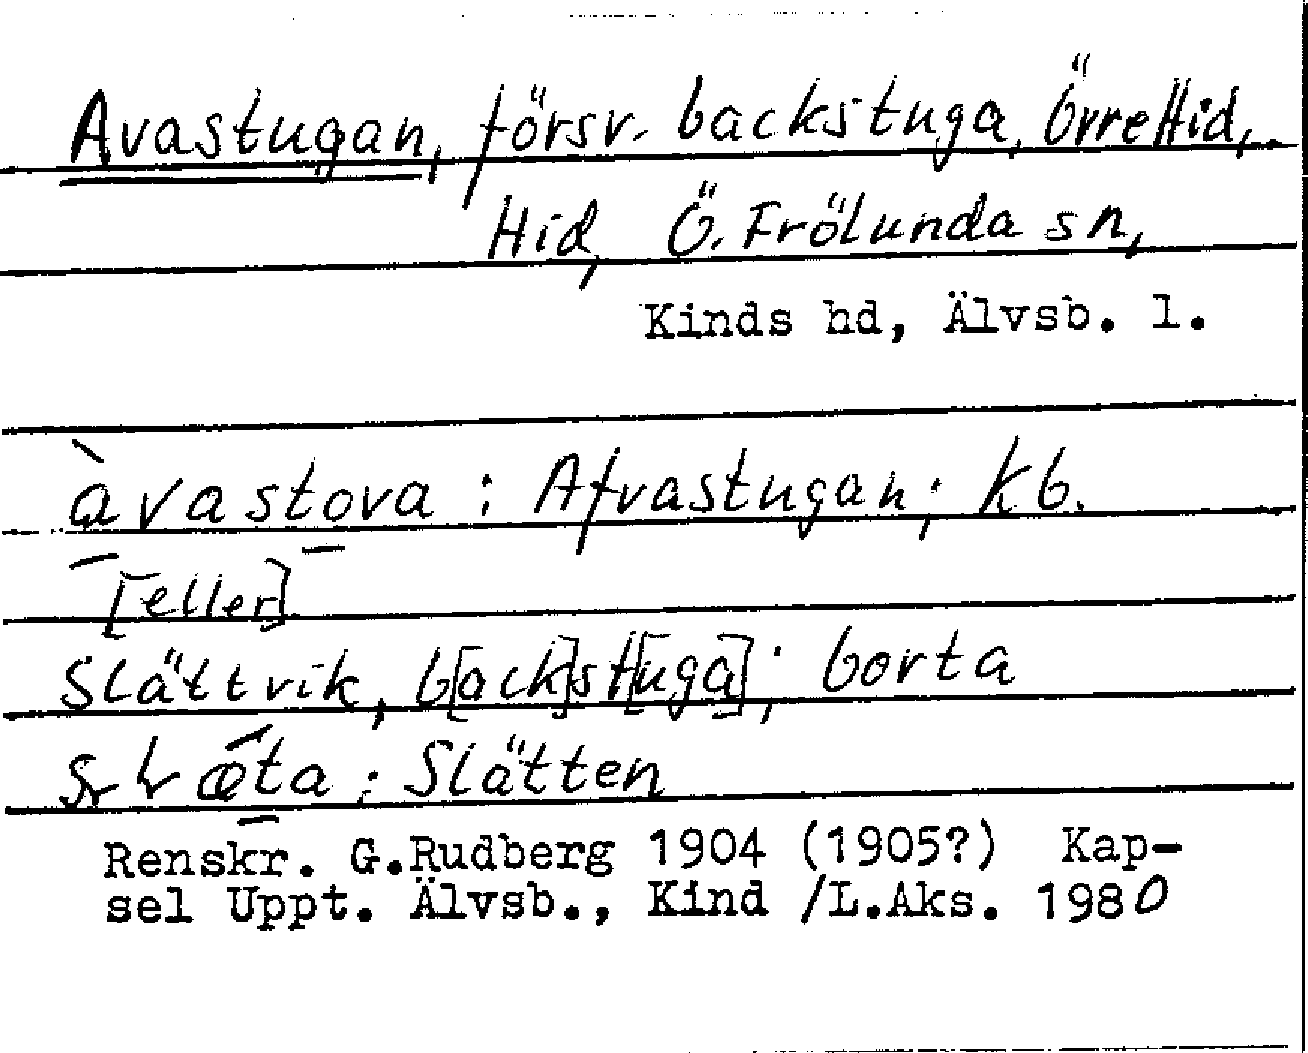 Avastugan, försv. backstuga, Örre Hid,
Hid, Ö. Frölunda sn,
Kinds hd, Älvsb. l.
àvastova : Afvastugan; kb.
[eller]
Slättvik, b[ack]st[uga]; borta
: Slätten
Renskr. G.Rudberg 1904 (1905?) Kap-
sel Uppt. Älvsb., Kind /L.Aks. 1980